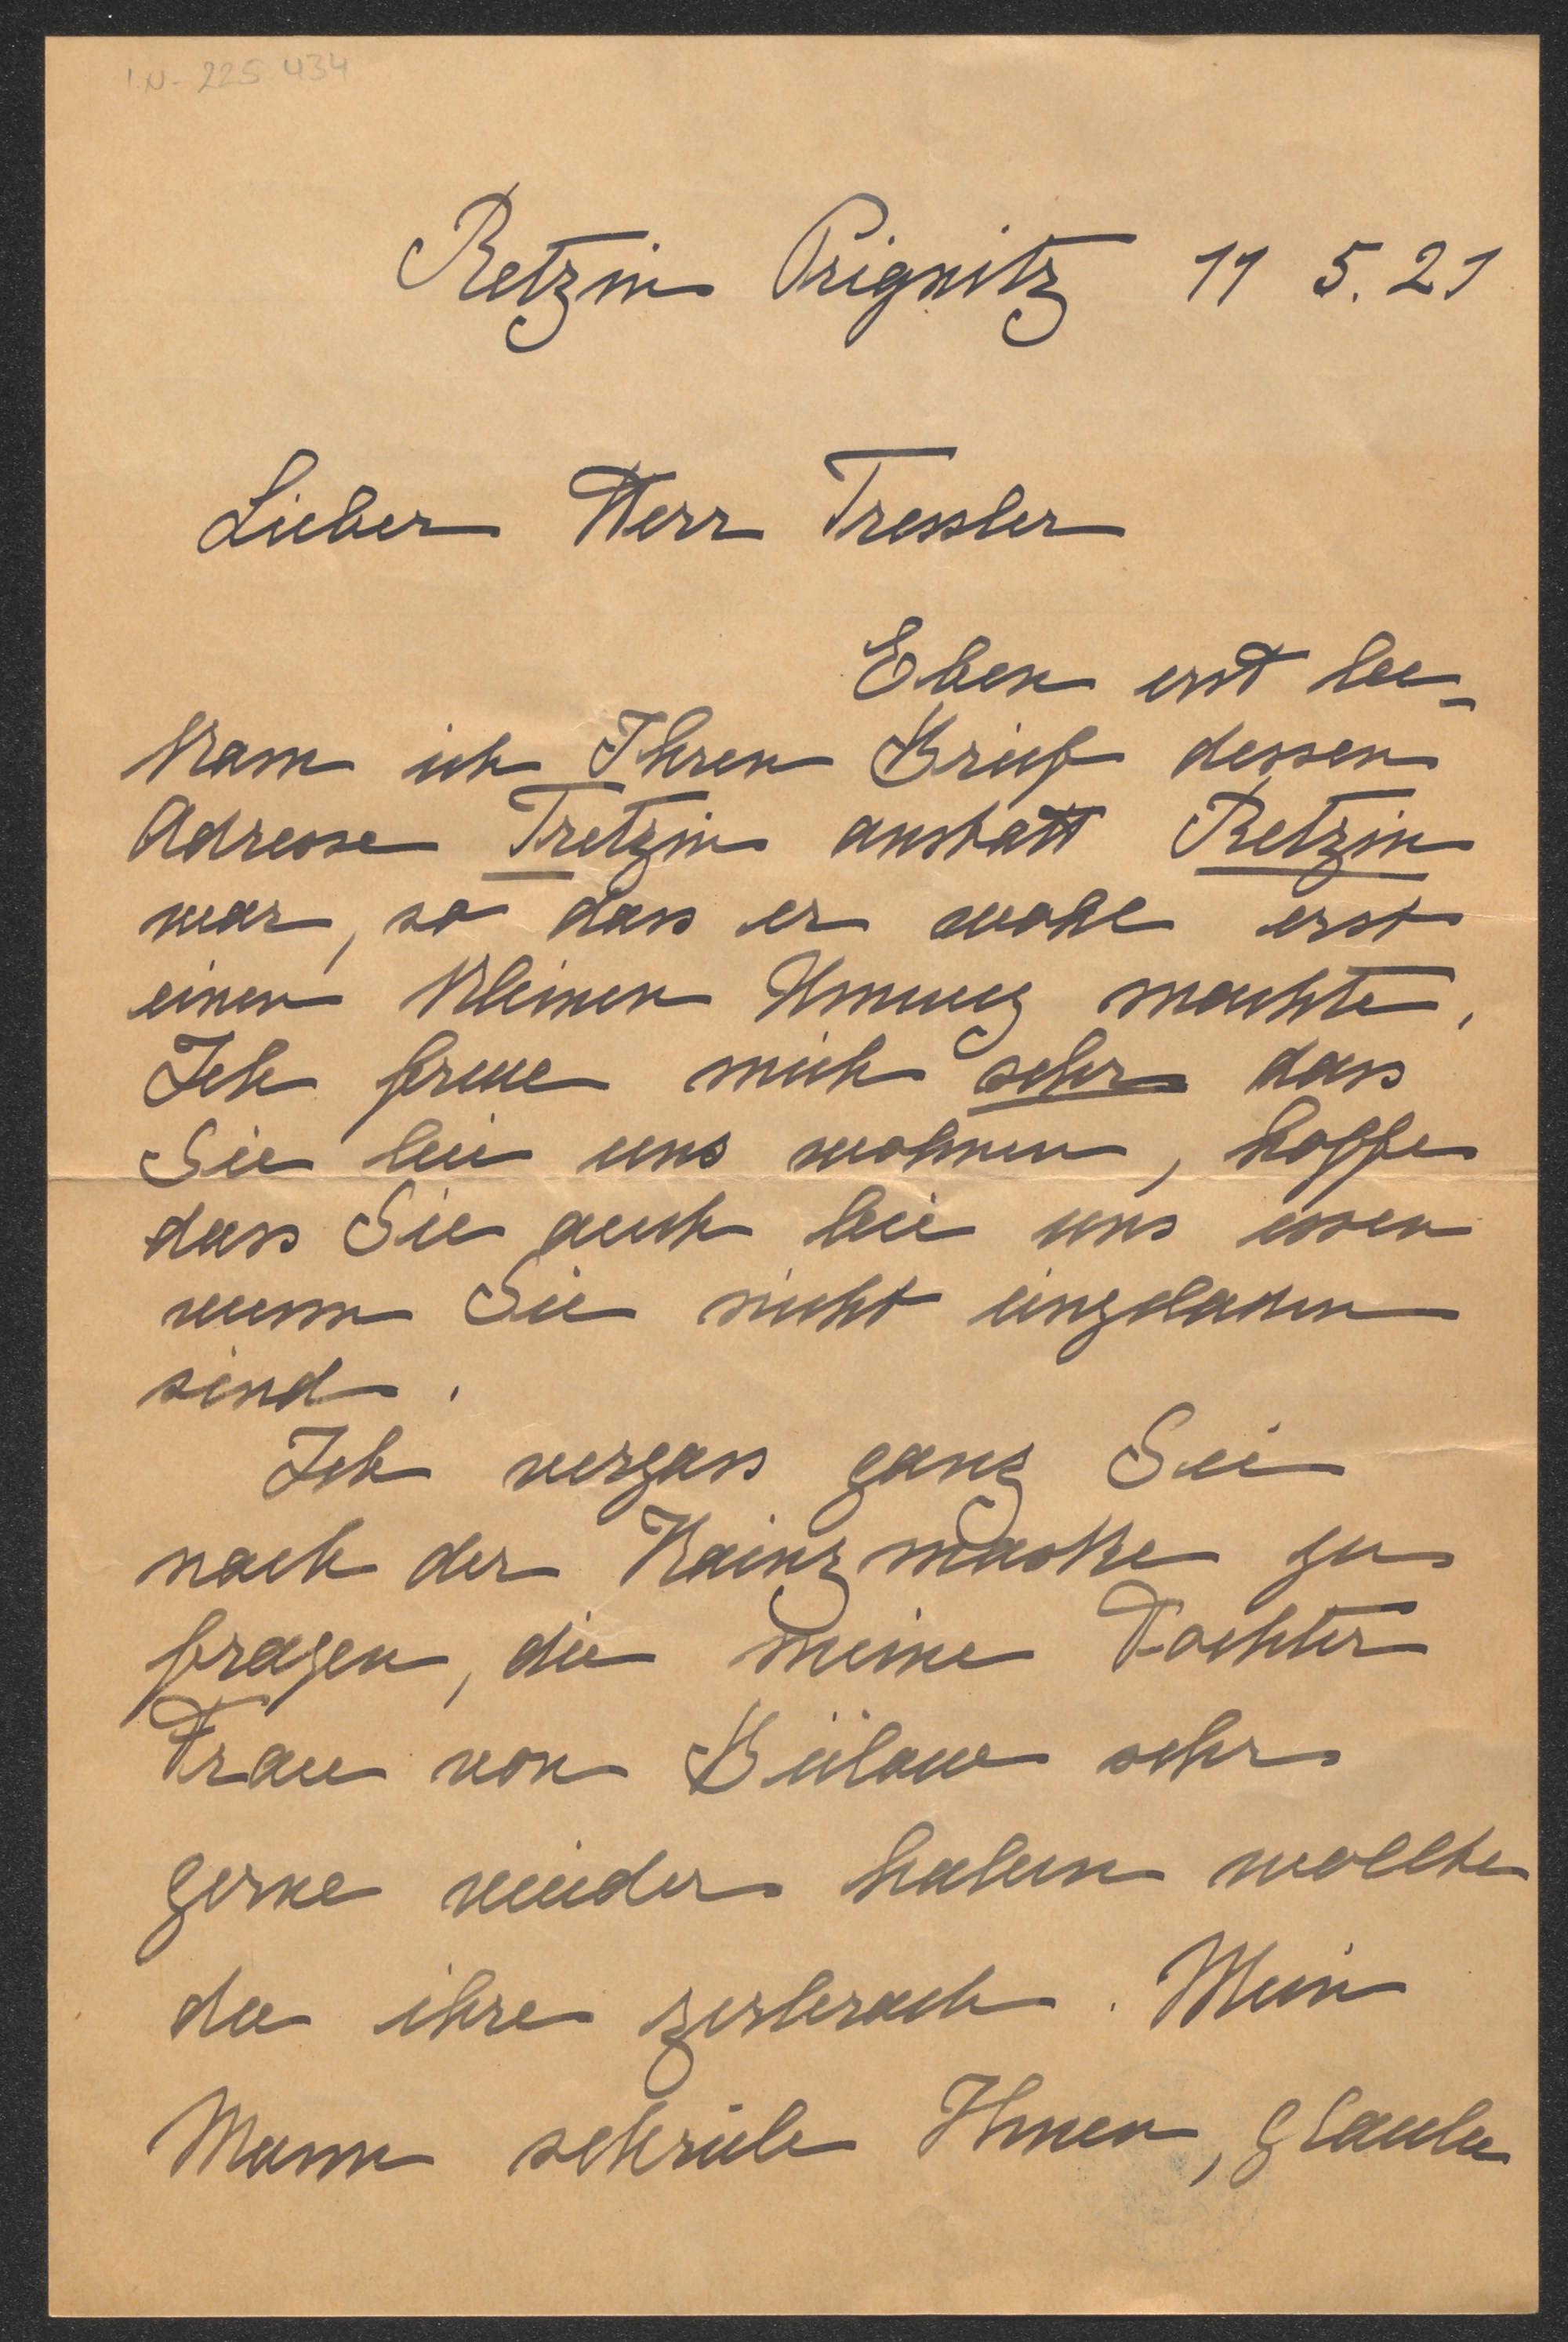 I.N. 225.434
Retzin Prignitz 11 5. 21
Lieber Herr Tressler
Eben erst be-
kam ich Ihren Brief dessen
Adresse Tretzin anstatt Retzin
war, so dass er wohl erst
einen kleinen Umweg machte.
Ich freue mich sehr dass
Sie bei uns wohnen, hoffe
dass Sie auch bei uns essen
wenn Sie nicht eingeladen
sind.
Ich vergass ganz Sie
nach der Kainzmaske zu
fragen, die meine Tochter
Frau von Bülow sehr
gerne wieder haben wollte
da ihre zerbrach. Mein
Mann schrieb Ihnen, glaube